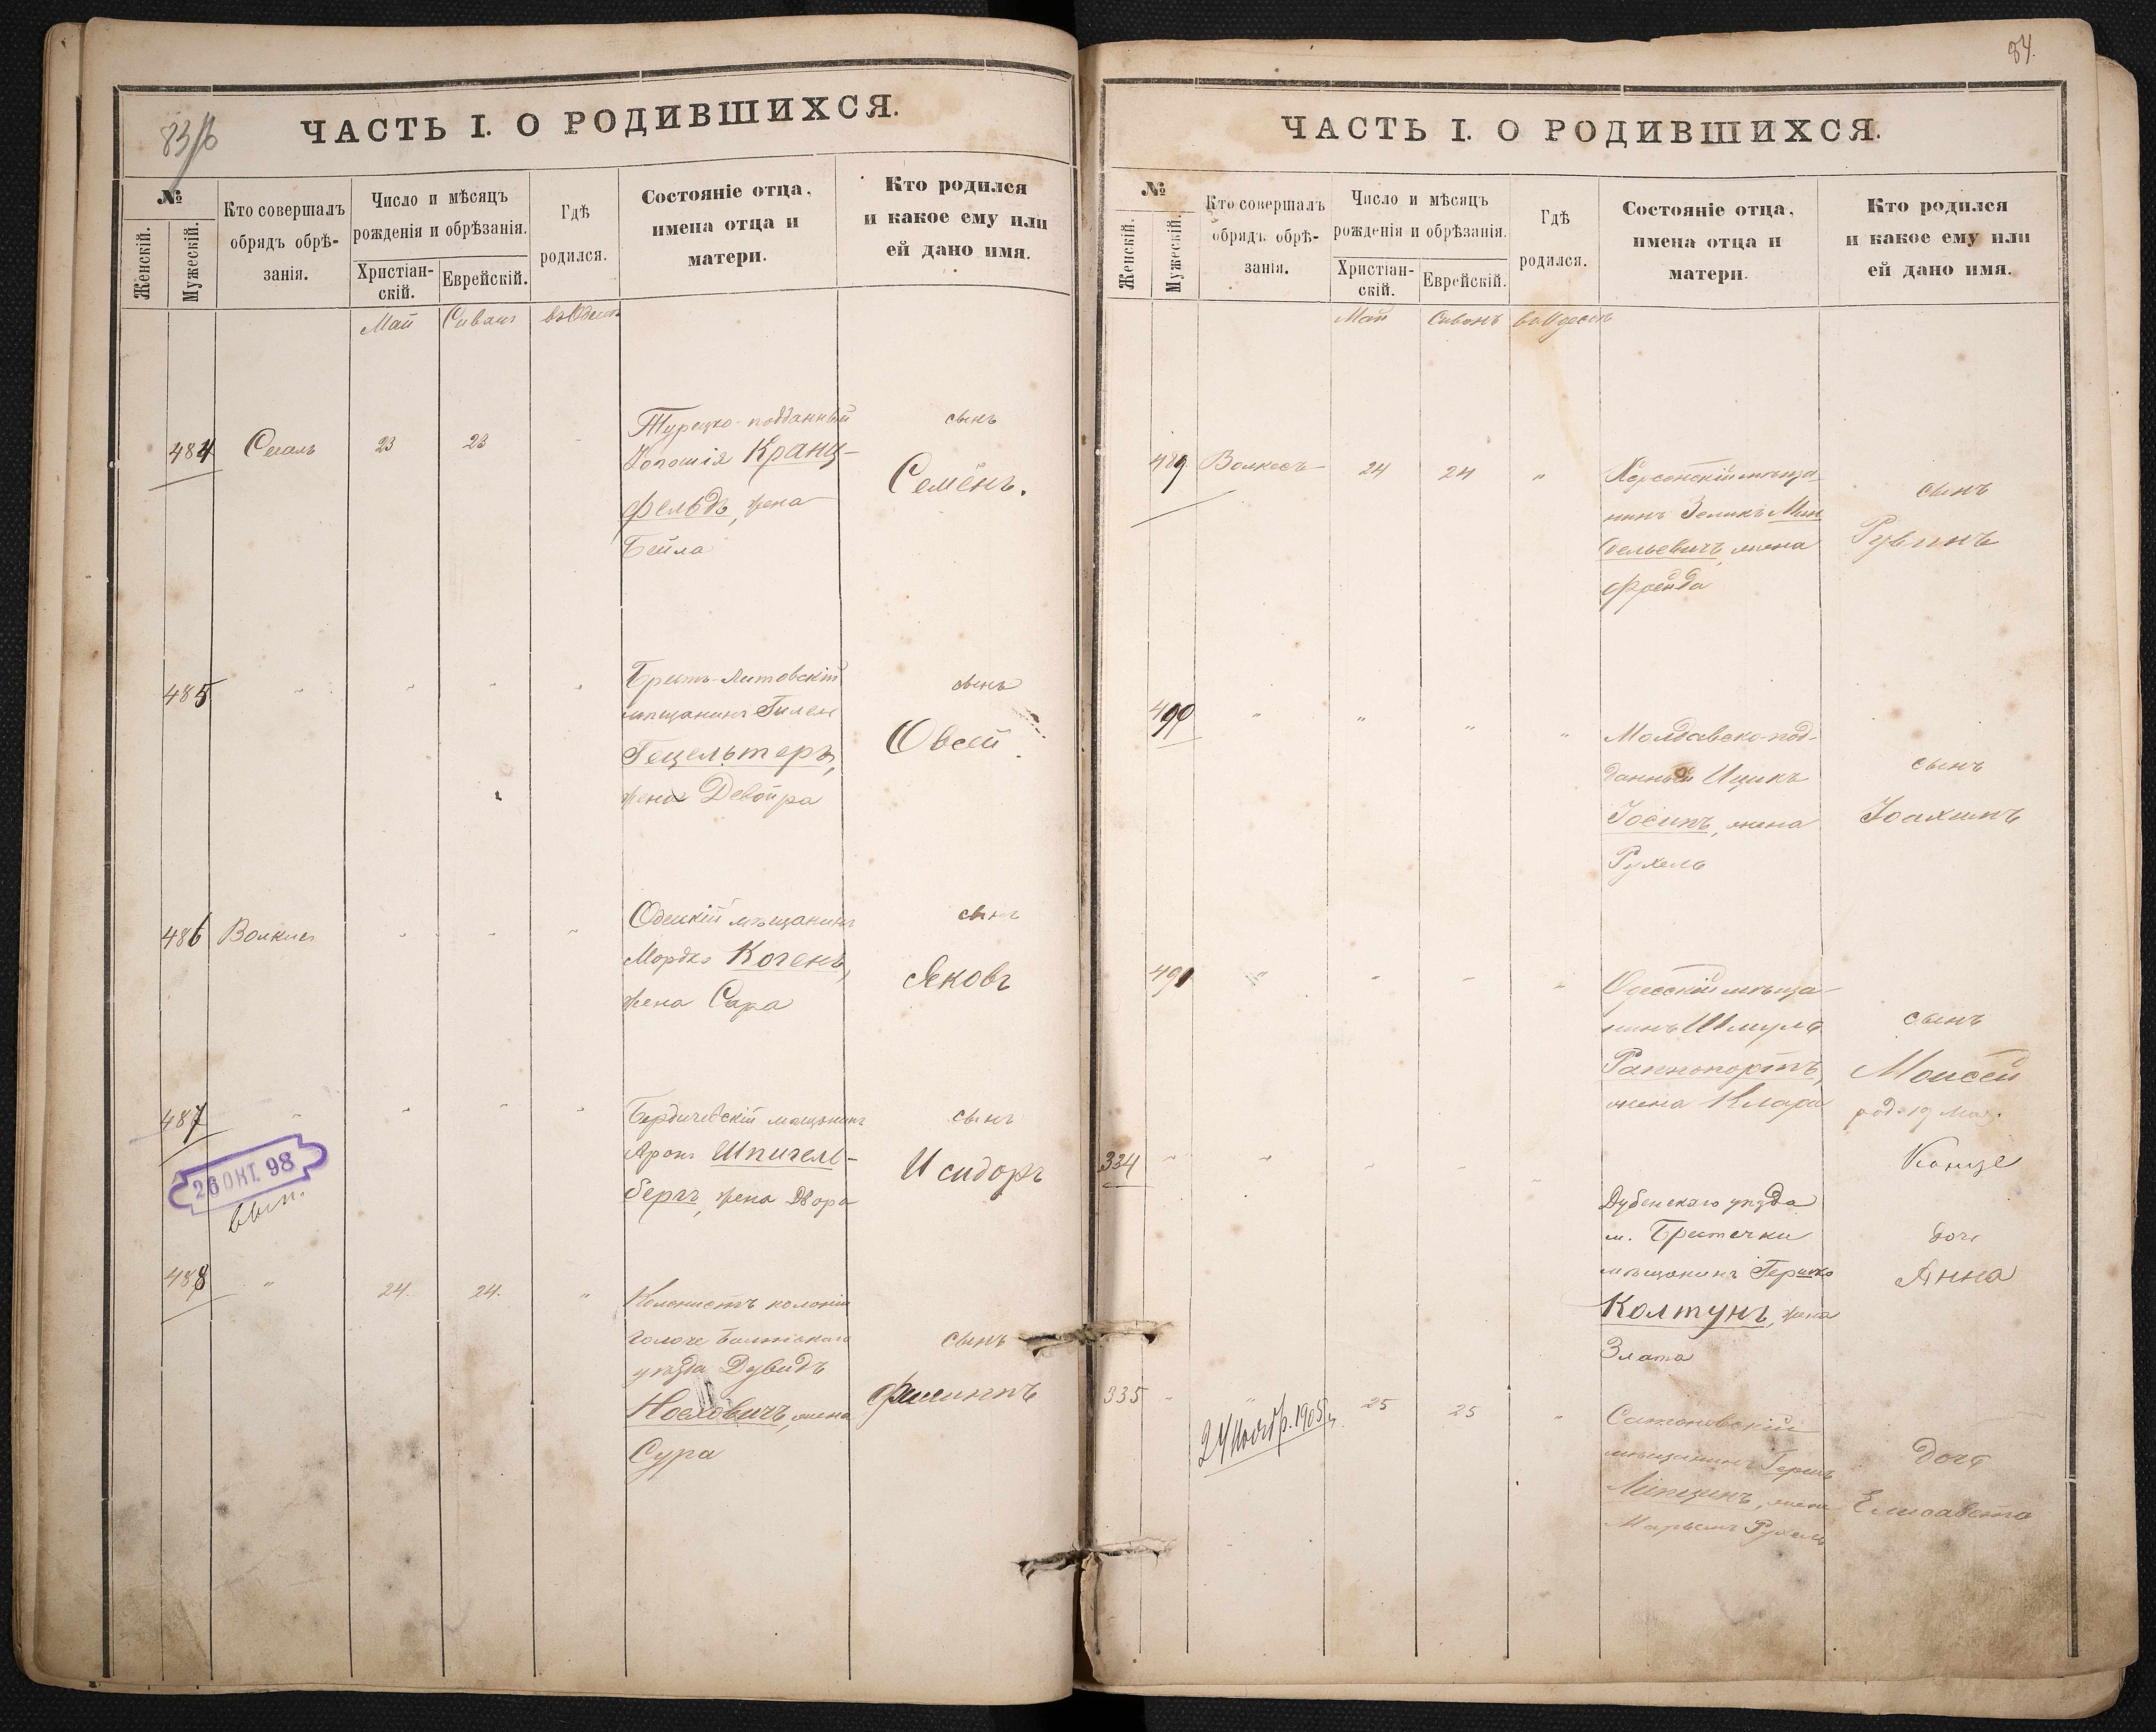 83/б
ЧАСТЬ I. О РОДИВШИХСЯ.
№
Женскій.
Мужескій.
Кто совершалъ
обрядъ обрѣ-
занія.
Число и мѣсяцъ
рожденія и обрѣзанія.
Христіан-
скій.
Еврейскій.
Гдѣ
родился.
Состояніе отца,
имена отца и
матери.
Кто родился
и какое ему или
ей дано имя.
Май Сиванъ въ Одессѣ
484 Сегаль 23 23
Турецко-подданный
Кранц-
фельдъ, жена
Бейла
сынъ
Семёнъ.
485
Брестъ-Литовскій
мѣщанинъ Гилель
Гецельтеръ,
жена Двойра
сынъ
Овсей
486 Волкисъ
Одесскій мѣщанинъ
Мордко Когенъ,
жена Сара
сынъ
Яковъ
487
26 ОКТ. 98
вып.
Бердичевскій мѣщанинъ
Аронъ Шпигель-
бергъ, жена Двора
сынъ
Исидоръ
488 " 24. 24. "
Колонистъ колоніи
уѣзда Дувидъ
жена
Сура
сынъ
Филиппъ
84.
ЧАСТЬ I. О РОДИВШИХСЯ.
№
Женскій.
Мужескій.
Кто совершалъ
обрядъ обрѣ-
занія.
Число и мѣсяцъ
рожденія и обрѣзанія.
Христіан-
скій.
Еврейскій.
Гдѣ
родился.
Состояніе отца,
имена отца и
матери.
Кто родился
и какое ему или
ей дано имя.
Май Сивонъ въ Одессѣ
489 Волкесъ 24 24 "
Херсонскій мѣща-
нинъ Зеликъ Мин
дельевичъ, жена
Фрейда
сынъ
Рувинъ
490 " " " "
Молдавско-под-
данный Ицикъ
Іосипъ, жена
Рухель
сынъ
Іоахимъ
491
Одесскій мѣща-
нинъ Шмуль
Раппопортъ,
жена Клара
сынъ
Моисей
род. 19 Мая.
334
Дубенскаго уѣзда
м.
мѣщанинъ Гершко
Колтунъ, жена
Злата
дочь
Анна
335 25 25 "
24 Ноябр. 1905 г.
Сатановскій
мѣщанинъ Гершъ
жена
Марьямъ Рухель
дочь
Елисавета